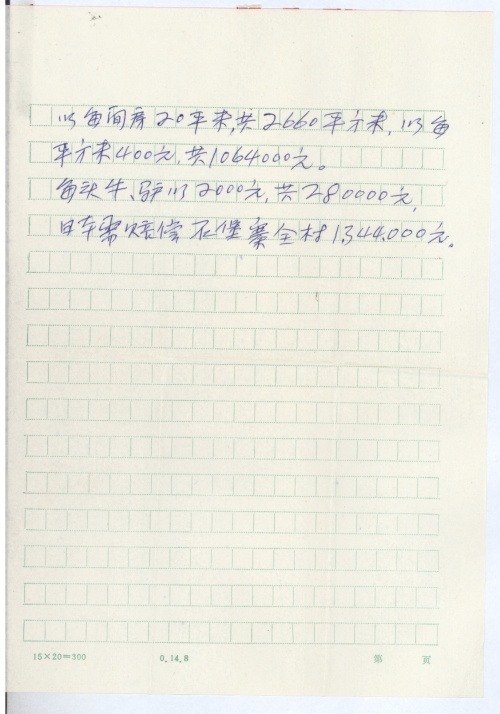 以每间房20平米，共2660平方米，以每
平方米400元，共1064000元。
每头牛、驴以2000元，共280000元，
日本需赔偿石堡寨全村1,344,000元。
15×20=300 0.14.8 第 页